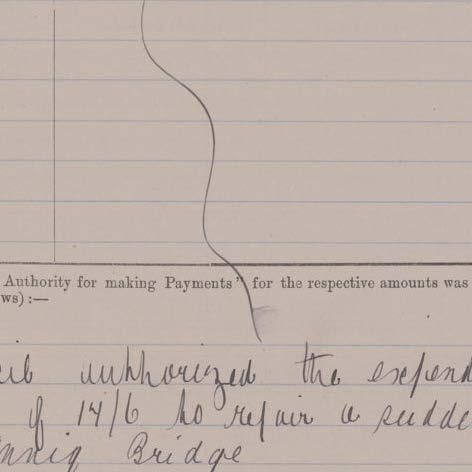 Authority for making Payments" for the respective amounts was
ws) :—
cil authorized the expend
of 14/6 to repair a sudde
Bridge